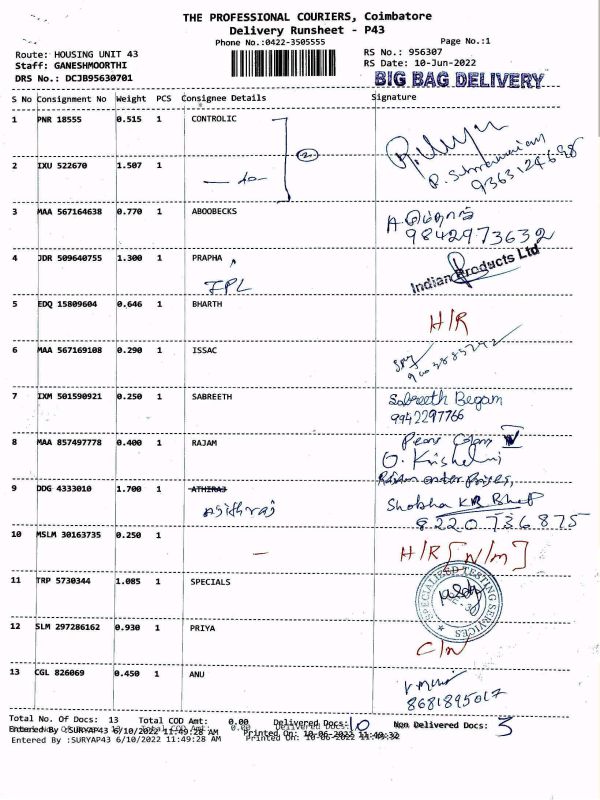 THE PROFESSIONAL COURIERS, Coimbatore
Delivery Runsheet - P43
Phone No.:0422-3505555
Page No.:1
Route: HOUSING UNIT 43
RS No.: 956307
Staff: GANESHMOORTHI
RS Date: 10-Jun-2022
DRS No.: DCJB95630701
BIG BAG DELIVERY
S No Consignment No Weight PCS Consignee Details Signature
1 PNR 18555 0.515 1 CONTROLIC
2
2 IXU 522670 1.507 1
— do —
3 MAA 567164638 0.770 1 ABOOBECKS
9842973632
4 JDR 509640755 1.300 1 PRAPHA
IPL
Indian Products Ltd
5 EDQ 15809604 0.646 1 BHARTH
H/R
6 MAA 567169108 0.290 1 ISSAC
7 IXM 501590921 0.250 1 SABREETH Sabreeth Begam
9942297766
8 MAA 857497778 0.400 1 RAJAM
9 DDG 4333010 1.700 1 ATHIRAJ
Shobha KR Bhat
8220736875
10 MSLM 30163735 0.250 1 —
H/R [N/m]
11 TRP 5730344 1.085 1 SPECIALS
SPECIALISED TESTING SERVICES
12 SLM 297286162 0.930 1 PRIYA
C/N
13 CGL 826069 0.450 1 ANU
8681895017
Total No. Of Docs: 13 Total COD Amt: 0.00 Delivered Docs: 10 Non Delivered Docs: 3
Entered By :SURYAP43 6/10/2022 11:49:28 AM Printed On: 10-06-2022 11:49:32